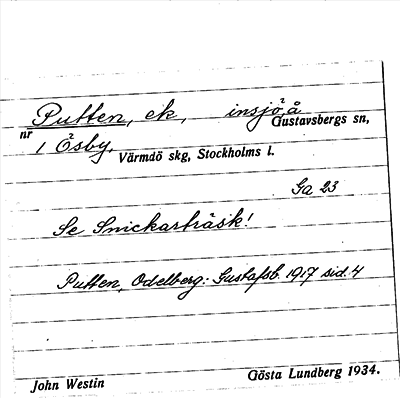 Putten, ek, insjö, å
Gustavsbergs sn,
nr 1 Ösby. Värmdö skg, Stockholms l.
Ga 23
Se Snickarträsk!
Putten, Odelberg: Gustafsb. 1917 sid. 4
John Westin Gösta Lundberg 1934.